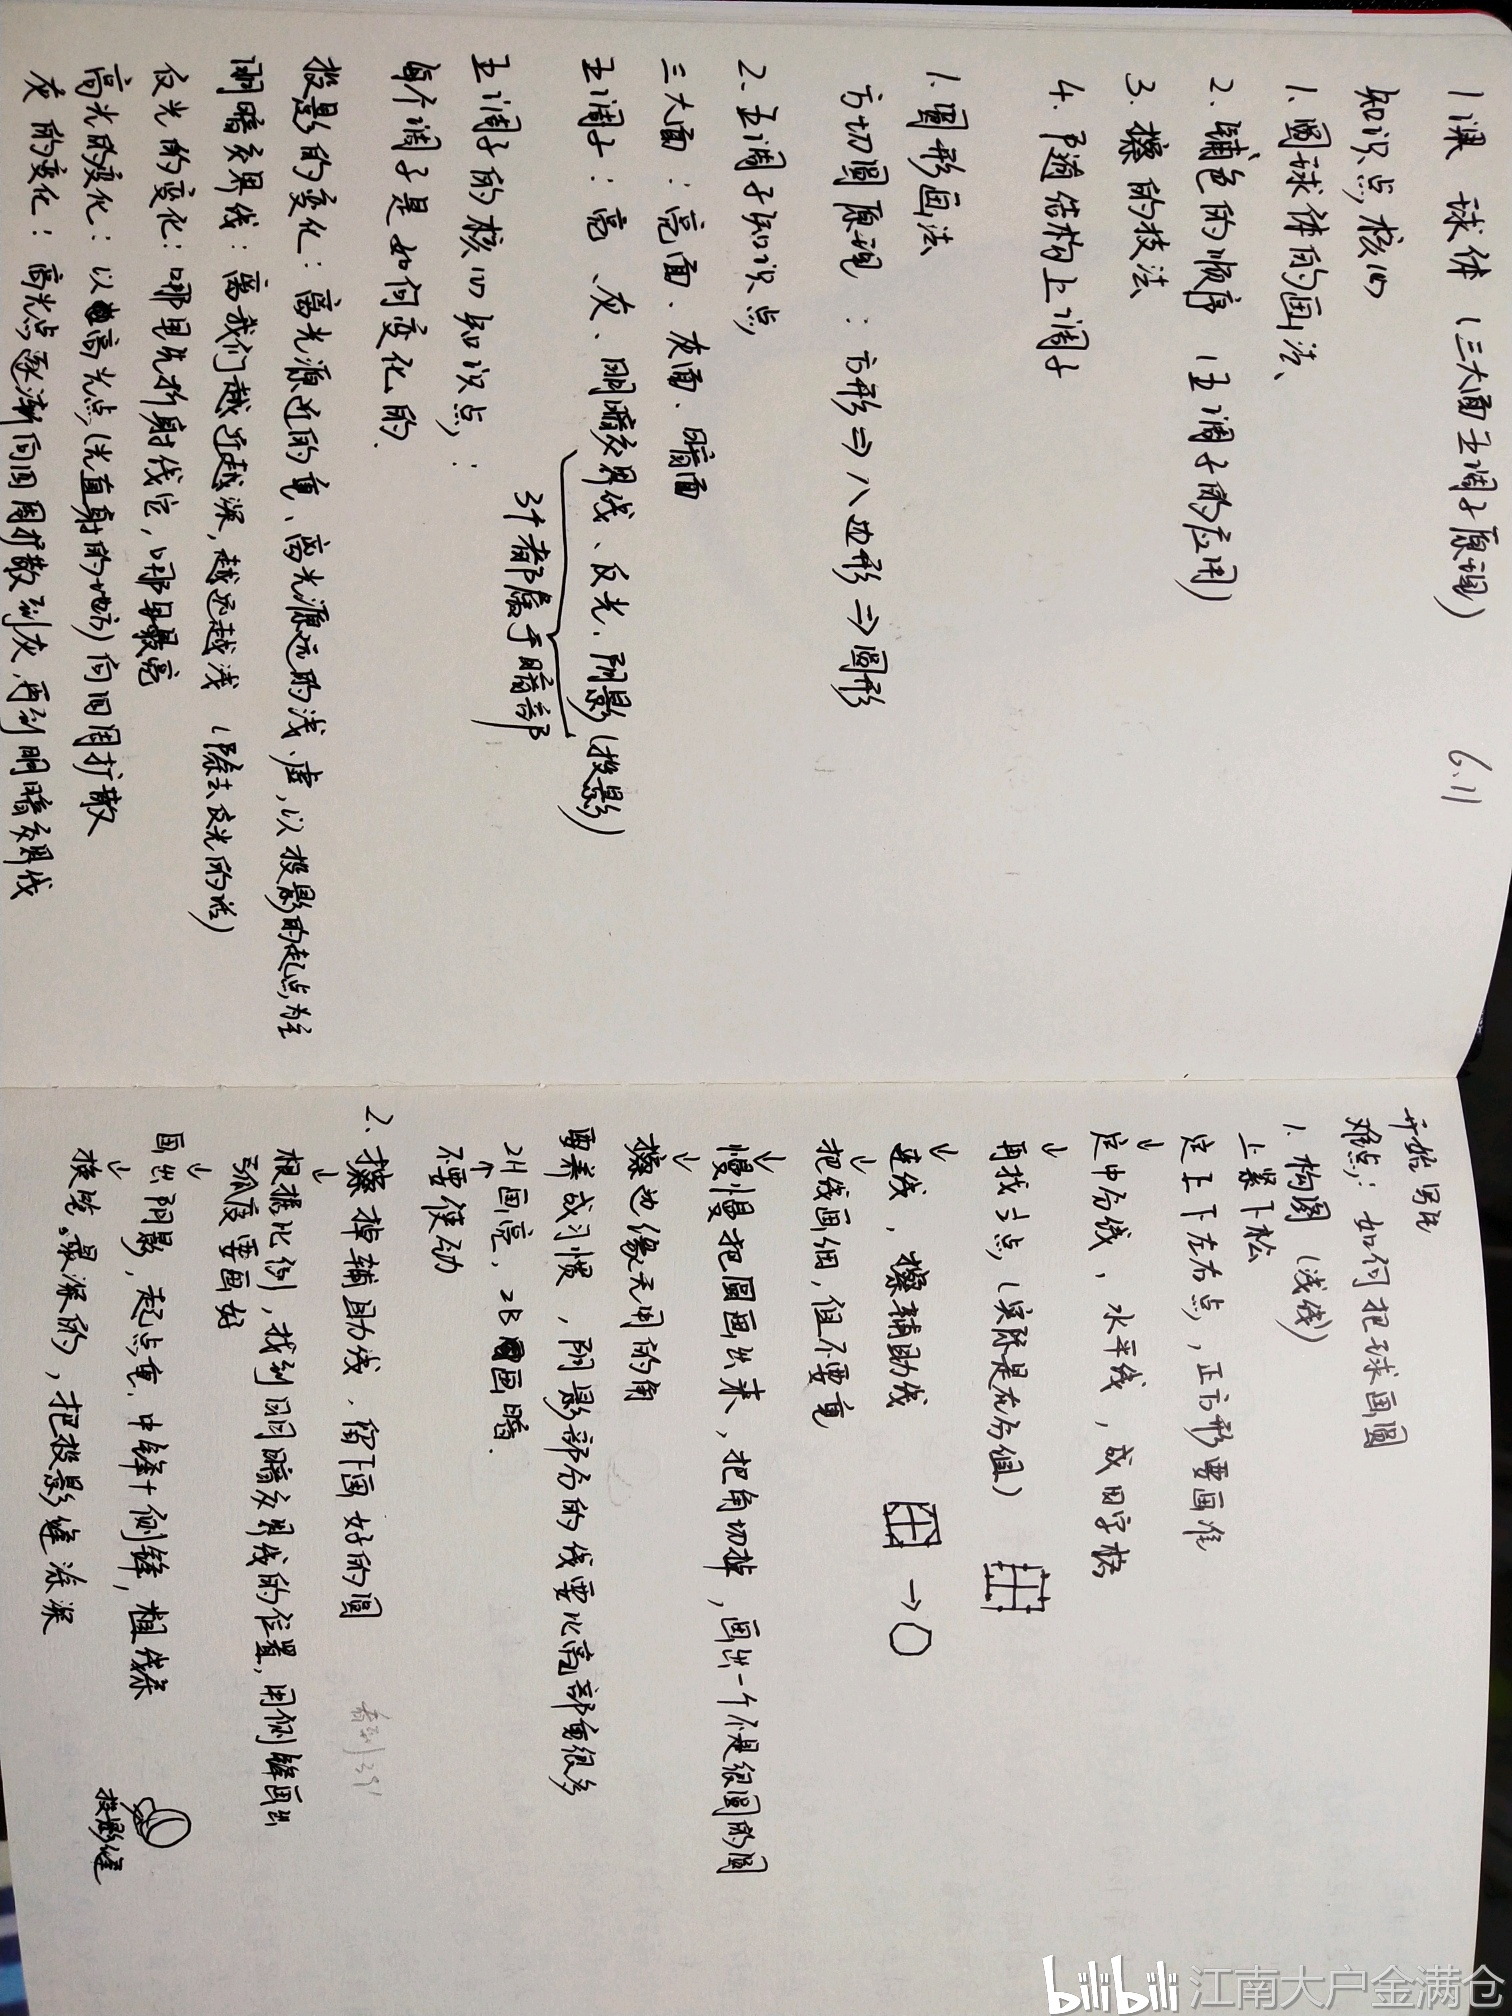 1课 球体（三大面五调子原理） 6.11
知识点核心
1.圆球体的画法、
2.铺色的顺序（五调子的应用）
3.擦的技法
4.随结构上调子
1.圆形画法
方切圆原理：方形⇒八边形⇒圆形
2.五调子知识点
三大面：亮面、灰面、暗面
五调子：亮、灰、明暗交界线、反光、阴影（投影）
3个都属于暗部
五调子的核心知识点：
每个调子是如何变化的.
投影的变化：离光源近的重、离光源远的浅、虚，以投影的起点为主
明暗交界线：离我们越近越深，越远越浅（除去反光的话）
反光的变化：哪里先折射线它，哪里最亮
高光的变化：以高光点（光直射的地方）向四周扩散
灰的变化：高光点逐渐向四周扩散到灰，再到明暗交界线
开始写生
难点：如何把球画圆
1.构图（浅线）
上紧下松
定上下左右点，正方形要画准
↓
定中分线，水平线，成田字格
↓
再找⅓点，（实际是九分值）
↓
连线，擦辅助线 →
↓
把线画细，但不要重
↓
慢慢把圆画出来，把角切掉，画出一个不是很圆的圆
↓
擦边缘无用的角
要养成习惯，阴影部分的线要比亮部重很多
2H画亮，2B画暗.
↑
不要使劲
2.擦掉辅助线，留下画好的圆
↓
根据比例，找到明暗交界线的位置，用侧锋画出
弧度要画好
↓
画出阴影，起点重，中锋+侧锋，粗线条
↓
换笔最深的，把投影缝涂深
投影缝
看到39'
bilibili 江南大户金满仓